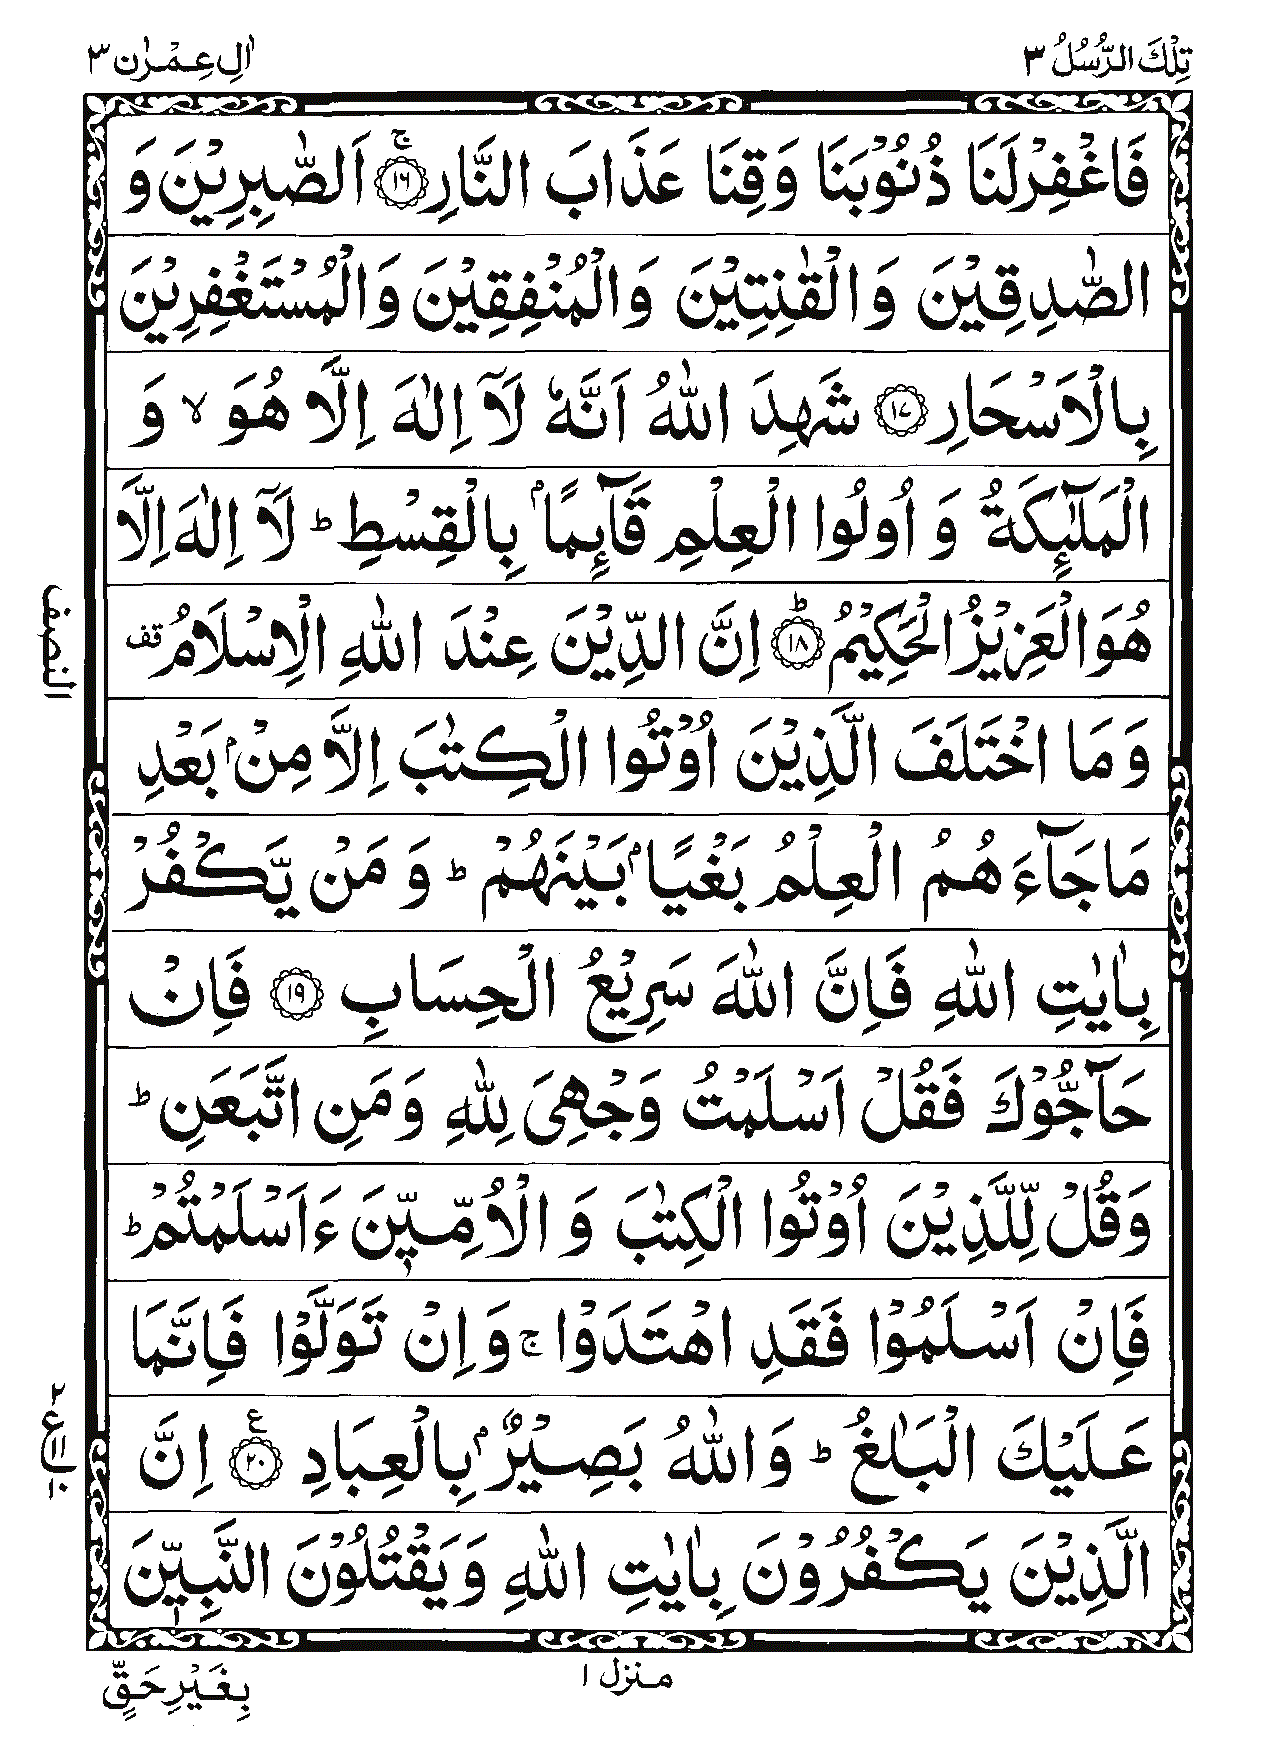 تِلْكَ الرُّسُلُ ٣
اٰلِ عِمْرٰن ٣
فَاغْفِرْلَنَا ذُنُوْبَنَا وَقِنَا عَذَابَ النَّارِ ۚ ﴿١٦﴾ اَلصّٰبِرِيْنَ وَ
الصّٰدِقِيْنَ وَ الْقٰنِتِيْنَ وَالْمُنْفِقِيْنَ وَالْمُسْتَغْفِرِيْنَ
بِالْاَسْحَارِ ﴿١٧﴾ شَهِدَ اللّٰهُ اَنَّهٗ لَآ اِلٰهَ اِلَّا هُوَ ۙ وَ
الْمَلٰٓئِكَةُ وَ اُولُوا الْعِلْمِ قَآئِمًاۢ بِالْقِسْطِ ؕ لَآ اِلٰهَ اِلَّا
هُوَالْعَزِيْزُالْحَكِيْمُ ؕ ﴿١٨﴾ اِنَّ الدِّيْنَ عِنْدَ اللّٰهِ الْاِسْلَامُ قف
النصف
وَ مَا اخْتَلَفَ الَّذِيْنَ اُوْتُوا الْكِتٰبَ اِلَّا مِنْۢ بَعْدِ
مَاجَآءَ هُمُ الْعِلْمُ بَغْيًاۢ بَيْنَهُمْ ؕ وَ مَنْ يَّكْفُرْ
بِاٰيٰتِ اللّٰهِ فَاِنَّ اللّٰهَ سَرِيْعُ الْحِسَابِ ﴿١٩﴾ فَاِنْ
حَآجُّوْكَ فَقُلْ اَسْلَمْتُ وَجْهِىَ لِلّٰهِ وَمَنِ اتَّبَعَنِ ؕ
وَقُلْ لِّلَّذِيْنَ اُوْتُوا الْكِتٰبَ وَ الْاُمِّيّٖنَ ءَاَسْلَمْتُمْ ؕ
فَاِنْ اَسْلَمُوْا فَقَدِ اهْتَدَوْا ۚ وَاِنْ تَوَلَّوْا فَاِنَّمَا
عَلَيْكَ الْبَلٰغُ ؕ وَاللّٰهُ بَصِيْرٌۢ بِالْعِبَادِ ﴿٢٠﴾ ع اِنَّ
الَّذِيْنَ يَكْفُرُوْنَ بِاٰيٰتِ اللّٰهِ وَيَقْتُلُوْنَ النَّبِيّٖنَ
منزل ١
بِغَيْرِحَقٍّ